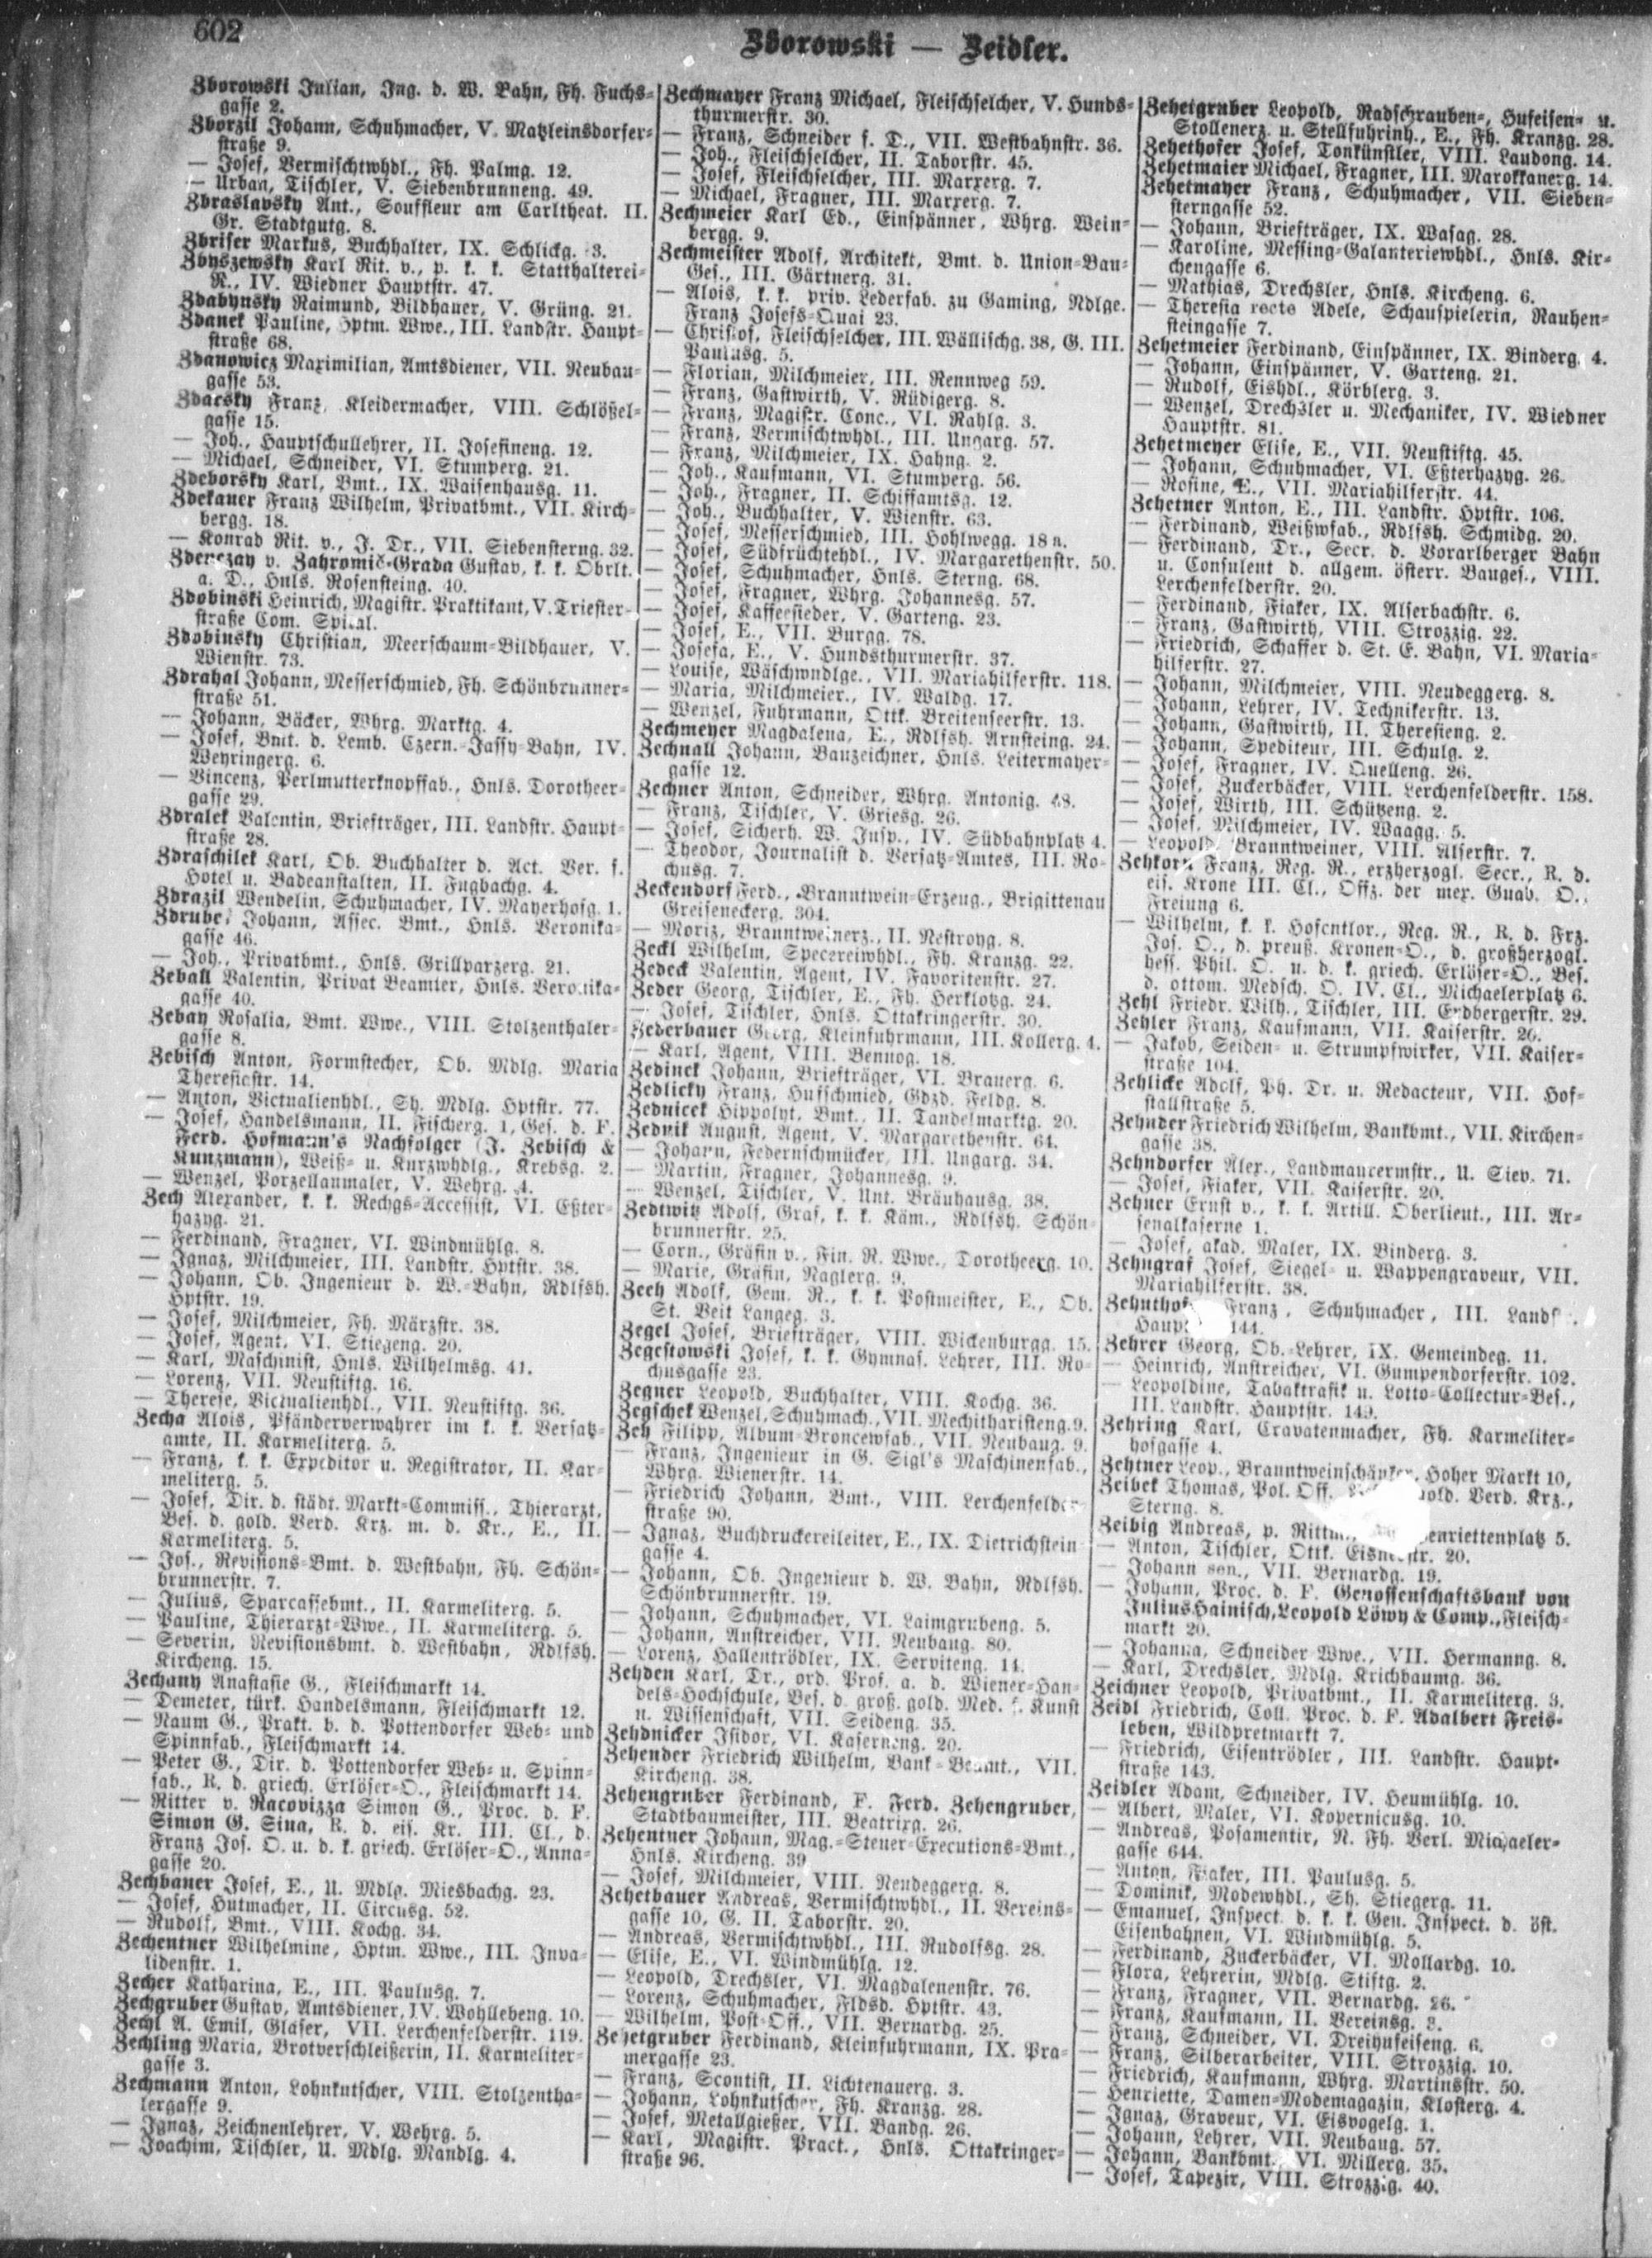 602
Zborowski — Zeidler.
Zborowski Julian, Ing. d. W. Bahn, Fh. Fuchs-
gasse 2.
Zborzil Johann, Schuhmacher, V. Matzleinsdorfer-
straße 9.
— Josef, Vermischtwhdl., Fh. Palmg. 12.
— Urban, Tischler, V. Siebenbrunneng. 49.
Zbraslavsky Ant., Souffleur am Carltheat. II.
Gr. Stadtgutg. 8.
Zbriser Markus, Buchhalter, IX. Schlickg. 3.
Zbyszewsky Karl Rit. v., p. k. k. Statthalterei-
R., IV. Wiedner Hauptstr. 47.
Zdabynsky Raimund, Bildhauer, V. Grüng. 21.
Zdanek Pauline, Hptm. Wwe., III. Landstr. Haupt-
straße 68.
Zdanowicz Maximilian, Amtsdiener, VII. Neubau-
gasse 53.
Zdarsky Franz, Kleidermacher, VIII. Schlößel-
gasse 15.
— Joh., Hauptschullehrer, II. Josefineng. 12.
— Michael, Schneider, VI. Stumperg. 21.
Zdeborsky Karl, Bmt., IX. Waisenhausg. 11.
Zdekauer Franz Wilhelm, Privatbmt., VII. Kirch-
bergg. 18.
— Konrad Rit. v., J. Dr., VII. Siebensterng. 32.
Zderezay v. Zahromic-Grada Gustav, k. k. Obrlt.
a. D., Hnls. Rosensteing. 40.
Zdobinski Heinrich, Magistr. Praktikant, V. Triester-
straße Com. Spital.
Zdobinsky Christian, Meerschaum-Bildhauer, V.
Wienstr. 73.
Zdrahal Johann, Messerschmied, Fh. Schönbrunner-
straße 51.
— Johann, Bäcker, Whrg. Marktg. 4.
— Josef, Bmt. d. Lemb. Czern.-Jassy-Bahn, IV.
Weyringerg. 6.
— Vincenz, Perlmutterknopffab., Hnls. Dorotheer-
gasse 29.
Zdralek Valentin, Briefträger, III. Landstr. Haupt-
straße 28.
Zdraschilek Karl, Ob. Buchhalter d. Act. Ver. f.
Hotel u. Badeanstalten, II. Fugbachg. 4.
Zdrazil Wendelin, Schuhmacher, IV. Mayerhofg. 1.
Zdrube, Johann, Assec. Bmt., Hnls. Veronika-
gasse 46.
— Joh., Privatbmt., Hnls. Grillparzerg. 21.
Zeball Valentin, Privat Beamter, Hnls. Veronika-
gasse 40.
Zebay Rosalia, Bmt. Wwe., VIII. Stolzenthaler-
gasse 8.
Zebisch Anton, Formstecher, Ob. Mdlg. Maria
Theresiastr. 14.
— Anton, Victualienhdl., Sh. Mdlg. Hptstr. 77.
— Josef, Handelsmann, II. Fischerg. 1, Ges. d. F.
Ferd. Hofmann's Nachfolger (J. Zebisch &
Kunzmann), Weiß- u. Kurzwhdlg., Krebsg. 2.
— Wenzel, Porzellanmaler, V. Wehrg. 4.
Zech Alexander, k. k. Rechgs-Accessist, VI. Eßter-
hazyg. 21.
— Ferdinand, Fragner, VI. Windmühlg. 8.
— Ignaz, Milchmeier, III. Landstr. Hptstr. 38.
— Johann, Ob. Ingenieur d. W.-Bahn, Rdlfsh.
Hptstr. 19.
— Josef, Milchmeier, Fh. Märzstr. 38.
— Josef, Agent, VI. Stiegeng. 20.
— Karl, Maschinist, Hnls. Wilhelmsg. 41.
— Lorenz, VII. Neustiftg. 16.
— Therese, Victualienhdl., VII. Neustiftg. 36.
Zecha Alois, Pfänderverwahrer im k. k. Versatz-
amte, II. Karmeliterg. 5.
— Franz, k. k. Expeditor u. Registrator, II. Kar-
meliterg. 5.
— Josef, Dir. d. städt. Markt-Commiss., Thierarzt,
Bes. d. gold. Verd. Krz. m. d. Kr., E., II.
Karmeliterg. 5.
— Jos., Revisions-Bmt. d. Westbahn, Fh. Schön-
brunnerstr. 7.
— Julius, Sparcassebmt., II. Karmeliterg. 5.
— Pauline, Thierarzt-Wwe., II. Karmeliterg. 5.
— Severin, Revisionsbmt. d. Westbahn, Rdlfsh.
Kircheng. 15.
Zechany Anastasie G., Fleischmarkt 14.
— Demeter, türk. Handelsmann, Fleischmarkt 12.
— Naum G., Prakt. b. d. Pottendorfer Web- und
Spinnfab., Fleischmarkt 14.
— Peter G., Dir. d. Pottendorfer Web- u. Spinn-
fab., R. d. griech. Erlöser-O., Fleischmarkt 14.
— Ritter v. Racovizza Simon G., Proc. d. F.
Simon G. Sina, R. d. eis. Kr. III. Cl., d.
Franz Jos. O. u. d. k. griech. Erlöser-O., Anna-
gasse 20.
Zechbauer Josef, E., U. Mdlg. Miesbachg. 23.
— Josef, Hutmacher, II. Circusg. 52.
— Rudolf, Bmt., VIII. Kochg. 34.
Zechentner Wilhelmine, Hptm. Wwe., III. Inva-
lidenstr. 1.
Zecher Katharina, E., III. Paulusg. 7.
Zechgruber Gustav, Amtsdiener, IV. Wohllebeng. 10.
Zechl A. Emil, Glaser, VII. Lerchenfelderstr. 119.
Zechling Maria, Brotverschleißerin, II. Karmeliter-
gasse 3.
Zechmann Anton, Lohnkutscher, VIII. Stolzentha-
lergasse 9.
— Ignaz, Zeichnenlehrer, V. Wehrg. 5.
— Joachim, Tischler, U. Mdlg. Mandlg. 4.
Zechmayer Franz Michael, Fleischselcher, V. Hunds-
thurmerstr. 30.
— Franz, Schneider f. D., VII. Westbahnstr. 36.
— Joh., Fleischselcher, II. Taborstr. 45.
— Josef, Fleischselcher, III. Marxerg. 7.
— Michael, Fragner, III. Marxerg. 7.
Zechmeier Karl Ed., Einspänner, Whrg. Wein-
bergg. 9.
Zechmeister Adolf, Architekt, Bmt. d. Union-Bau-
Ges., III. Gärtnerg. 31.
— Alois, k. k. priv. Lederfab. zu Gaming, Ndlge.
Franz Josefs-Quai 23.
— Christof, Fleischselcher, III. Wällischg. 38, G. III.
Paulusg. 5.
— Florian, Milchmeier, III. Rennweg 59.
— Franz, Gastwirth, V. Rüdigerg. 8.
— Franz, Magistr. Conc., VI. Rahlg. 3.
— Franz, Vermischtwhdl., III. Ungarg. 57.
— Franz, Milchmeier, IX. Hahng. 2.
— Joh., Kaufmann, VI. Stumperg. 56.
— Joh., Fragner, II. Schiffamtsg. 12.
— Joh., Buchhalter, V. Wienstr. 63.
— Josef, Messerschmied, III. Hohlwegg. 18 a.
— Josef, Südfrüchtehdl., IV. Margarethenstr. 50.
— Josef, Schuhmacher, Hnls. Sterng. 68.
— Josef, Fragner, Whrg. Johannesg. 57.
— Josef, Kaffeesieder, V. Garteng. 23.
— Josef, E., VII. Burgg. 78.
— Josefa, E., V. Hundsthurmerstr. 37.
— Louise, Wäschwndlge., VII. Mariahilferstr. 118.
— Maria, Milchmeier., IV. Waldg. 17.
— Wenzel, Fuhrmann, Ottk. Breitenseerstr. 13.
Zechmeyer Magdalena, E., Rdlfsh. Arnsteing. 24.
Zechnall Johann, Bauzeichner, Hnls. Leitermayer-
gasse 12.
Zechner Anton, Schneider, Whrg. Antonig. 48.
— Franz, Tischler, V. Griesg. 26.
— Josef, Sicherh. W. Insp., IV. Südbahnplatz 4.
— Theodor, Journalist d. Versatz-Amtes, III. Ro-
chusg. 7.
Zeckendorf Ferd., Branntwein-Erzeug., Brigittenau
Greiseneckerg. 304.
— Moriz, Branntweinerz., II. Nestroyg. 8.
Zeckl Wilhelm, Specereiwhdl., Fh. Kranzg. 22.
Zedeck Valentin, Agent, IV. Favoritenstr. 27.
Zeder Georg, Tischler, E., Fh. Herklotzg. 24.
— Josef, Tischler, Hnls. Ottakringerstr. 30.
Zederbauer Georg, Kleinfuhrmann, III. Kollerg. 4.
— Karl, Agent, VIII. Bennog. 18.
Zedinek Johann, Briefträger, VI. Brauerg. 6.
Zedlicky Franz, Hufschmied, Gdzd. Feldg. 8.
Zednicek Hippolyt, Bmt., II. Tandelmarktg. 20.
Zednik August, Agent, V. Margarethenstr. 64.
— Johann, Federnschmücker, III. Ungarg. 34.
— Martin, Fragner, Johannesg. 9.
— Wenzel, Tischler, V. Unt. Bräuhausg. 38.
Zedtwitz Adolf, Graf, k. k. Käm., Rdlfsh. Schön-
brunnerstr. 25.
— Corn., Gräfin v., Fin. R. Wwe., Dorotheerg. 10.
— Marie, Gräfin, Naglerg. 9.
Zeeh Adolf, Gem. R., k. k. Postmeister, E., Ob.
St. Veit Langeg. 3.
Zegel Josef, Briefträger, VIII. Wickenburgg. 15.
Zegestowski Josef, k. k. Gymnas. Lehrer, III. Ro-
chusgasse 23.
Zegner Leopold, Buchhalter, VIII. Kochg. 36.
Zegschek Wenzel, Schuhmach., VII. Mechitharisteng. 9.
Zeh Filipp, Album-Broncewfab., VII. Neubaug. 9.
— Franz, Ingenieur in G. Sigl's Maschinenfab.,
Whrg. Wienerstr. 14.
— Friedrich Johann, Bmt., VIII. Lerchenfelder-
straße 90.
— Ignaz, Buchdruckereileiter, E., IX. Dietrichstein-
gasse 4.
— Johann, Ob. Ingenieur d. W. Bahn, Rdlfsh.
Schönbrunnerstr. 19.
— Johann, Schuhmacher, VI. Laimgrubeng. 5.
— Johann, Anstreicher, VII. Neubaug. 80.
— Lorenz, Hallentrödler, IX. Serviteng. 14.
Zehden Karl, Dr., ord. Prof. a. d. Wiener-Han-
dels-Hochschule, Bes. d. groß. gold. Med. f. Kunst
u. Wissenschaft, VII. Seideng. 35.
Zehdnicker Isidor, VI. Kaserneng. 20.
Zehender Friedrich Wilhelm, Bank-Beamt., VII.
Kircheng. 38.
Zehengruber Ferdinand, F. Ferd. Zehengruber,
Stadtbaumeister, III. Beatrixg. 26.
Zehentner Johann, Mag.-Steuer-Executions-Bmt.,
Hnls. Kircheng. 39
— Josef, Milchmeier, VIII. Neudeggerg. 8.
Zehetbauer Andreas, Vermischtwhdl., II. Vereins-
gasse 10, G. II. Taborstr. 20.
— Andreas, Vermischtwhdl., III. Rudolfsg. 28.
— Elise, E., VI. Windmühlg. 12.
— Leopold, Drechsler, VI. Magdalenenstr. 76.
— Lorenz, Schuhmacher, Fldsd. Hptstr. 43.
— Wilhelm, Post-Off., VII. Bernardg. 25.
Zehetgruber Ferdinand, Kleinfuhrmann, IX. Pra-
mergasse 23.
— Franz, Scontist, II. Lichtenauerg. 3.
— Johann, Lohnkutscher, Fh. Kranzg. 28.
— Josef, Metallgießer, VII. Bandg. 26.
— Karl, Magistr. Pract., Hnls. Ottakringer-
straße 96.
Zehetgruber Leopold, Radschrauben-, Hufeisen- u.
Stollenerz. u. Stellfuhrinh., E., Fh. Kranzg. 28.
Zehethofer Josef, Tonkünstler, VIII. Laudong. 14.
Zehetmaier Michael, Fragner, III. Marokkanerg. 14.
Zehetmayer Franz, Schuhmacher, VII. Sieben-
sterngasse 52.
— Johann, Briefträger, IX. Wasag. 28.
— Karoline, Messing-Galanteriewhdl., Hnls. Kir-
chengasse 6.
— Mathias, Drechsler, Hnls. Kircheng. 6.
— Theresia recte Adele, Schauspielerin, Rauhen-
steingasse 7.
Zehetmeier Ferdinand, Einspänner, IX. Binderg. 4.
— Johann, Einspänner, V. Garteng. 21.
— Rudolf, Eishdl., Körblerg. 3.
— Wenzel, Drechsler u. Mechaniker, IV. Wiedner
Hauptstr. 81.
Zehetmeyer Elise, E., VII. Neustiftg. 45.
— Johann, Schuhmacher, VI. Eßterhazyg. 26.
— Rosine, E., VII. Mariahilferstr. 44.
Zehetner Anton, E., III. Landstr. Hptstr. 106.
— Ferdinand, Weißwfab., Rdlfsh. Schmidg. 20.
— Ferdinand, Dr., Secr. d. Vorarlberger Bahn
u. Consulent d. allgem. österr. Bauges., VIII.
Lerchenfelderstr. 20.
— Ferdinand, Fiaker, IX. Alserbachstr. 6.
— Franz, Gastwirth, VIII. Strozzig. 22.
— Friedrich, Schaffer d. St. E. Bahn, VI. Maria-
hilferstr. 27.
— Johann, Milchmeier, VIII. Neudeggerg. 8.
— Johann, Lehrer, IV. Technikerstr. 13.
— Johann, Gastwirth, II. Theresieng. 2.
— Johann, Spediteur, III. Schulg. 2.
— Josef, Fragner, IV. Quelleng. 26.
— Josef, Zuckerbäcker, VIII. Lerchenfelderstr. 158.
— Josef, Wirth, III. Schützeng. 2.
— Josef, Milchmeier, IV. Waagg. 5.
— Leopold, Branntweiner, VIII. Alserstr. 7.
Zehkorn Franz, Reg. R., erzherzogl. Secr., R. d.
eis. Krone III. Cl., Offz. der mex. Guad. O.,
Freiung 6.
— Wilhelm, k. k. Hofcntlor., Reg. R., R. d. Frz.
Jos. O., d. preuß. Kronen-O., d. großherzogl.
hess. Phil. O. u. d. k. griech. Erlöser-O., Bes.
d. ottom. Medsch. O. IV. Cl., Michaelerplatz 6.
Zehl Friedr. Wilh., Tischler, III. Erdbergerstr. 29.
Zehler Franz, Kaufmann, VII. Kaiserstr. 26.
— Jakob, Seiden- u. Strumpfwirker, VII. Kaiser-
straße 104.
Zehlicke Adolf, Ph. Dr. u. Redacteur, VII. Hof-
stallstraße 5.
Zehnder Friedrich Wilhelm, Bankbmt., VII. Kirchen-
gasse 38.
Zehndorfer Alex., Landmaurermstr., U. Siev. 71.
— Josef, Fiaker, VII. Kaiserstr. 20.
Zehner Ernst v., k. k. Artill. Oberlieut., III. Ar-
senalkaserne 1.
— Josef, akad. Maler, IX. Binderg. 3.
Zehngraf Josef, Siegel- u. Wappengraveur, VII.
Mariahilferstr. 38.
Zehnthof Franz, Schuhmacher, III. Lands
Haupt 144.
Zehrer Georg, Ob.-Lehrer, IX. Gemeindeg. 11.
— Heinrich, Anstreicher, VI. Gumpendorferstr. 102.
— Leopoldine, Tabaktrafik u. Lotto-Collectur-Bes.,
III. Landstr. Hauptstr. 149.
Zehring Karl, Cravatenmacher, Fh. Karmeliter-
hofgasse 4.
Zehtner Leop., Branntweinschänker, Hoher Markt 10,
Zeibek Thomas, Pol. Off. gold. Verd. Krz.,
Sterng. 8.
Zeibig Andreas, p. Rittm. enriettenplatz 5.
— Anton, Tischler, Ottk. Eisnerstr. 20.
— Johann sen., VII. Bernardg. 19.
— Johann, Proc. d. F. Genossenschaftsbank von
Julius Hainisch, Leopold Löwy & Comp., Fleisch-
markt 20.
— Johanna, Schneider Wwe., VII. Hermanng. 8.
— Karl, Drechsler, Mdlg. Krichbaumg. 36.
Zeichner Leopold, Privatbmt., II. Karmeliterg. 3.
Zeidl Friedrich, Coll. Proc. d. F. Adalbert Freis-
leben, Wildpretmarkt 7.
— Friedrich, Eisentrödler, III. Landstr. Haupt-
straße 143.
Zeidler Adam, Schneider, IV. Heumühlg. 10.
— Albert, Maler, VI. Kopernicusg. 10.
— Andreas, Posamentir, N. Fh. Verl. Michaeler-
gasse 644.
— Anton, Fiaker, III. Paulusg. 5.
— Dominik, Modewhdl., Sh. Stiegerg. 11.
— Emanuel, Inspect. d. k. k. Gen. Inspect. d. öst.
Eisenbahnen, VI. Windmühlg. 5.
— Ferdinand, Zuckerbäcker, VI. Mollardg. 10.
— Flora, Lehrerin, Mdlg. Stiftg. 2.
— Franz, Fragner, VII. Bernardg. 26.
— Franz, Kaufmann, II. Vereinsg. 3.
— Franz, Schneider, VI. Dreihufeiseng. 6.
— Franz, Silberarbeiter, VIII. Strozzig. 10.
— Friedrich, Kaufmann, Whrg. Martinsstr. 50.
— Henriette, Damen-Modemagazin, Klosterg. 4.
— Ignaz, Graveur, VI. Eisvogelg. 1.
— Johann, Lehrer, VII. Neubaug. 57.
— Johann, Bankbmt., VI. Millerg. 35.
— Josef, Tapezir, VIII. Strozzig. 40.